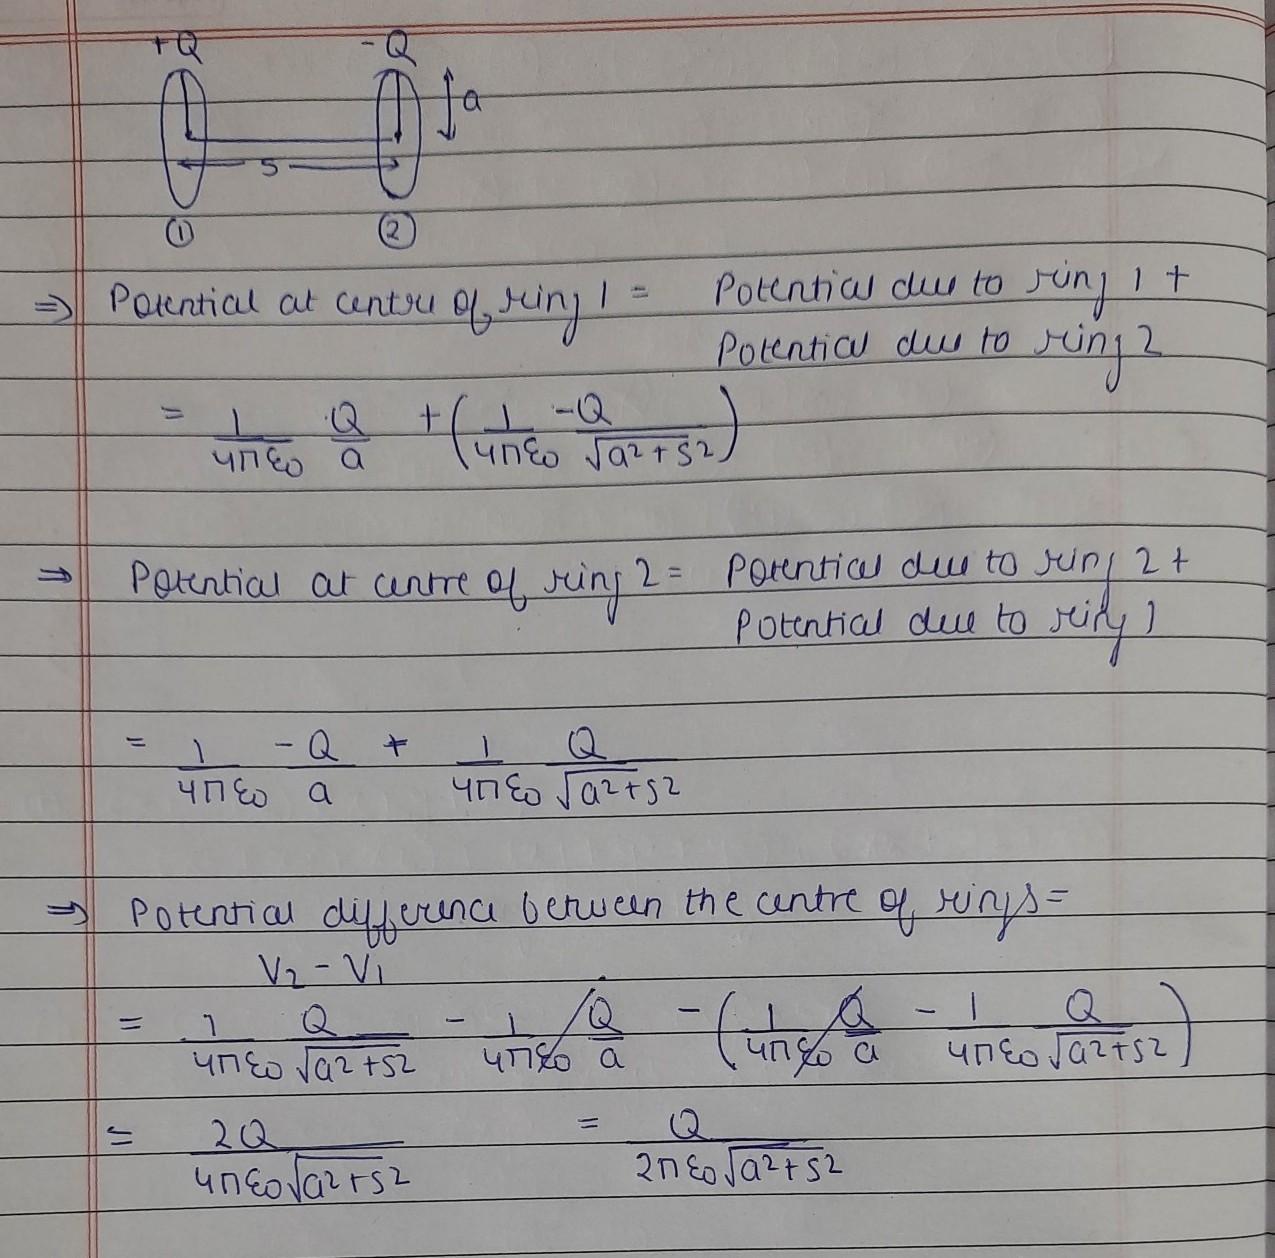 +Q -Q
a
s
① ②
⇒ Potential at centre of ring 1 = Potential due to ring 1 +
Potential due to ring 2
= 1/4πε₀ Q/a + (1/4πε₀ -Q/√a²+s²)
⇒ Potential at centre of ring 2 = Potential due to ring 2 +
Potential due to ring 1
= 1/4πε₀ -Q/a + 1/4πε₀ Q/√a²+s²
⇒ Potential difference between the centre of rings =
V₂ - V₁
= 1/4πε₀ Q/√a²+s² - 1/4πε₀ Q/a - (1/4πε₀ Q/a - 1/4πε₀ Q/√a²+s²)
= 2Q/4πε₀√a²+s² = Q/2πε₀√a²+s²